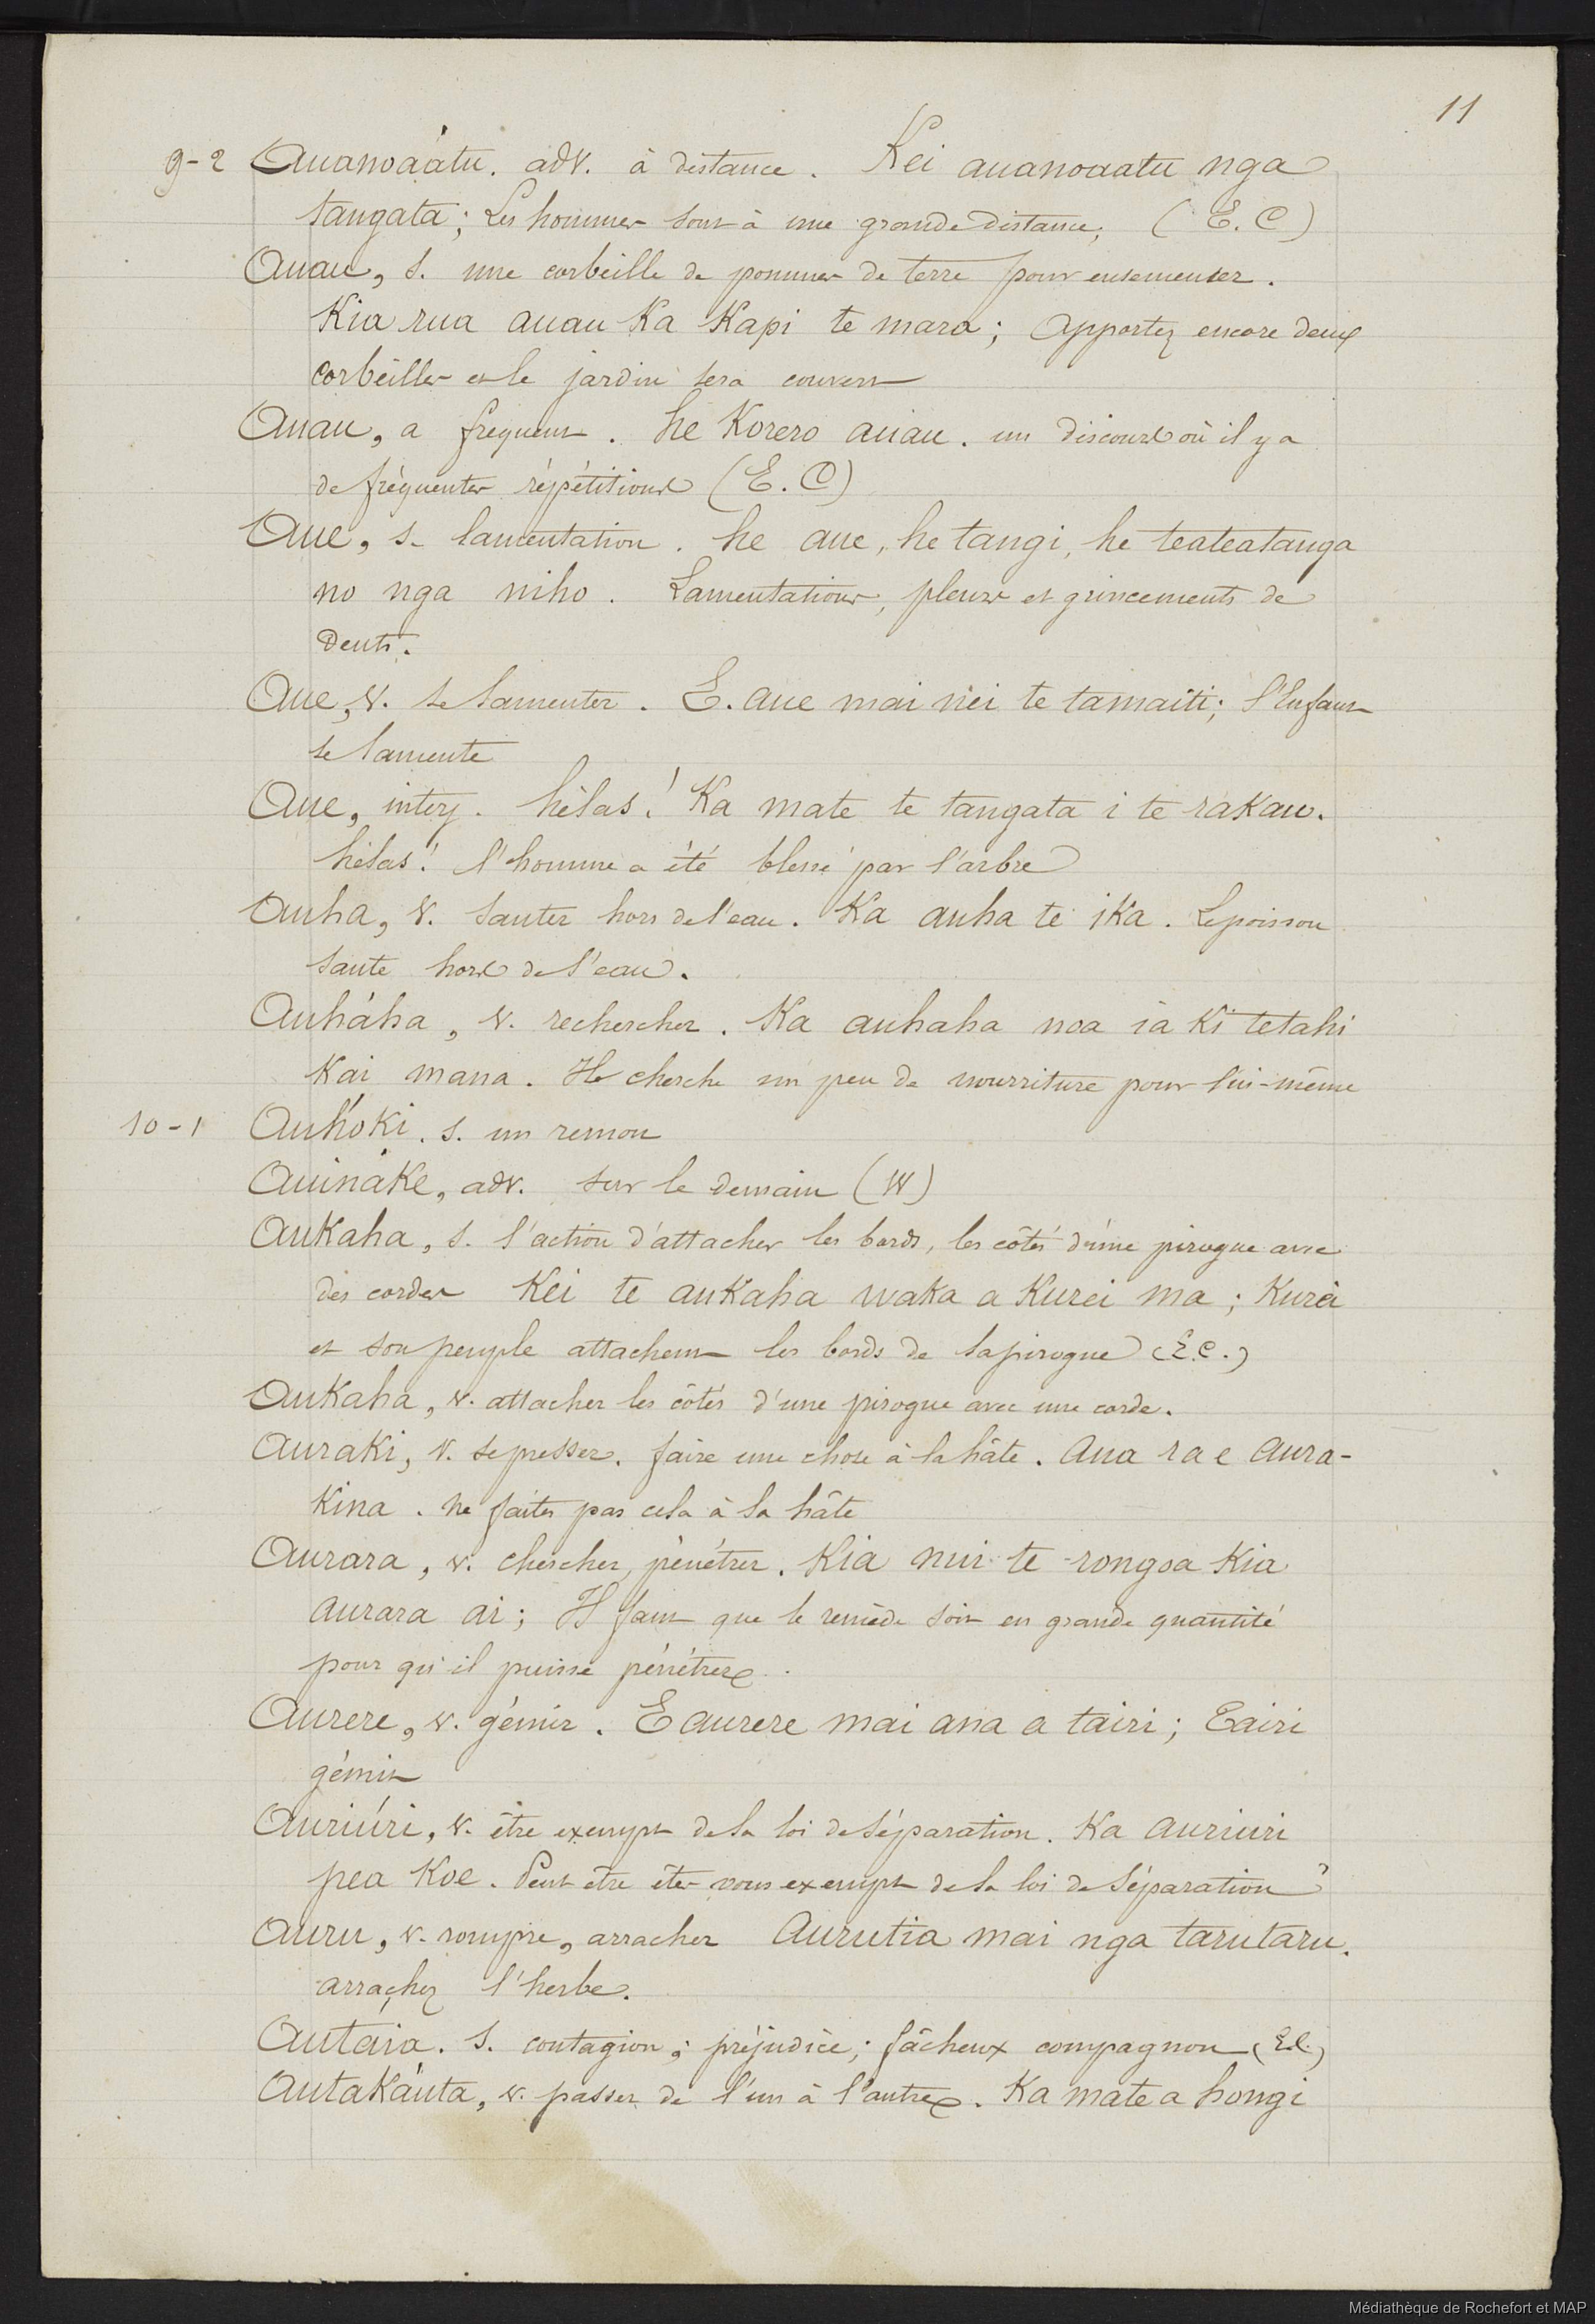 11
9-2 Auanoaátu. adv. à distance. Kei auanoaatu nga
tangata; Les hommes sont à une grande distance; (E. C)
Auau, s. une corbeille de pommes de terre pour ensemenser.
Kia rua auau Ka Kapi te mara; Apportez encore deux
corbeilles et le jardin sera couvert
Auau, a fréquent. he Korero auau. un discours où il y a
de fréquentes répétitions (E. C)
Aue, s. lamentation. he aue, he tangi, he teateatanga
no nga niho. Lamentations, pleurs et grincements de
Dents.
Aue, v. se lamenter. E. aue mai nei te tamaiti; l'Enfant
se lamente
Aue, interj. hélas! Ka mate te tangata i te rakau.
hélas! l'homme a été blessé par l'arbre
Auha, v. sauter hors de l'eau. Ka auha te ika. Le poisson
saute hors de l'eau.
Auháha, v. rechercher. Ka auhaha noa ia Ki tetahi
Kai mana. Il cherche un peu de nourriture pour lui-même
10-1 Auhóki. s. un remou
Auináke, adv. sur le demain (W)
Aukaha, s. l'action d'attacher les bords, les côtés d'une pirogue avec
des cordes Kei te aukaha waka a Kurei ma; Kurei
et son peuple attachent les bords de la pirogue (E.C.)
Aukaha, v. attacher les côtés d'une pirogue avec une corde.
Auraki, v. se presser. faire une chose à la hâte. Aua ra e aura-
kina. ne faites pas cela à la hâte
Aurara, v. chercher, pénétrer. Kia nui te rongoa Kia
aurara ai; Il faut que le remède soit en grande quantité
pour qu'il puisse pénétrer.
Aurere, v. gémir. E aurere mai ana a tairi; Tairi
gémit
Auriúri, v. être exempt de la loi de séparation. Ka auriuri
pea Koe. Peut être êtes vous exempt de la loi de séparation?
Auru, v. rompre, arracher Aurutia mai nga tarutaru.
arrachez l'herbe.
Autáia. s. contagion; préjudice; fâcheux compagnon (E.C.)
Autakáuta, v. passer de l'un à l'autre. Ka mate a hongi
Médiathèque de Rochefort et MAP